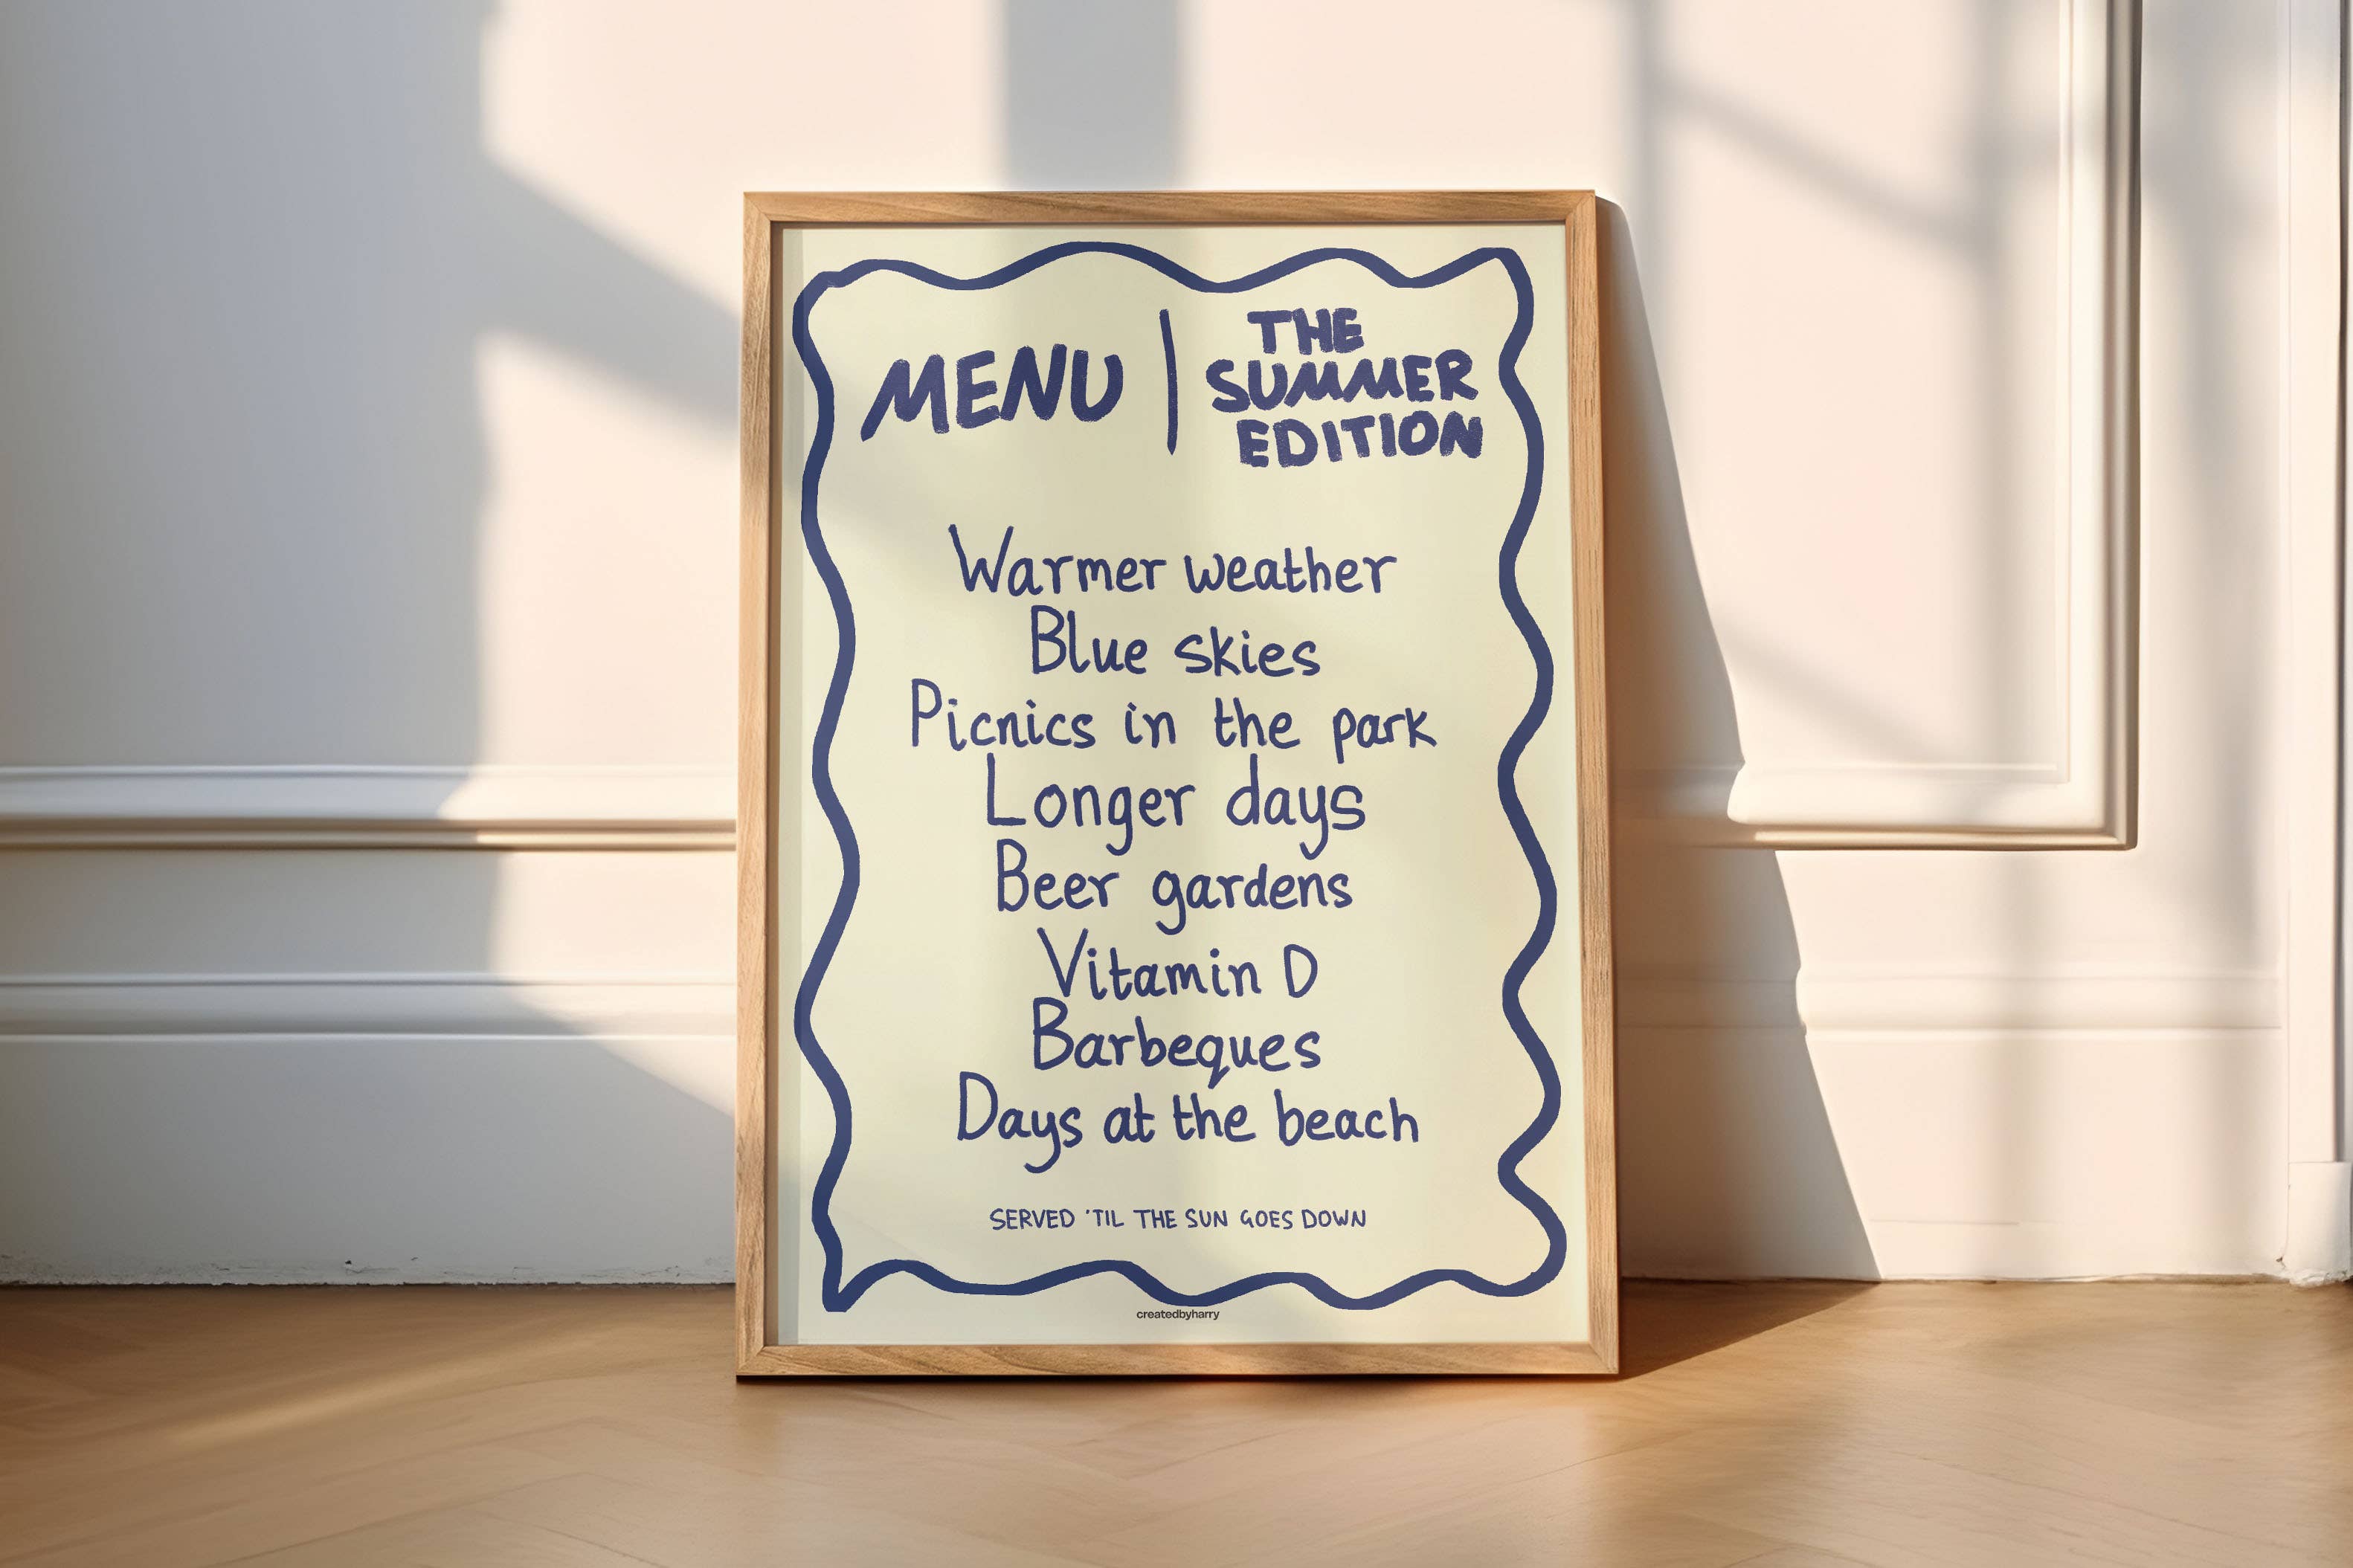 MENU
THE
SUMMER
EDITION
Warmer weather
Blue skies
Picnics in the park
Longer days
Beer gardens
Vitamin D
Barbeques
Days at the beach
SERVED 'TIL THE SUN GOES DOWN
createdbyharry